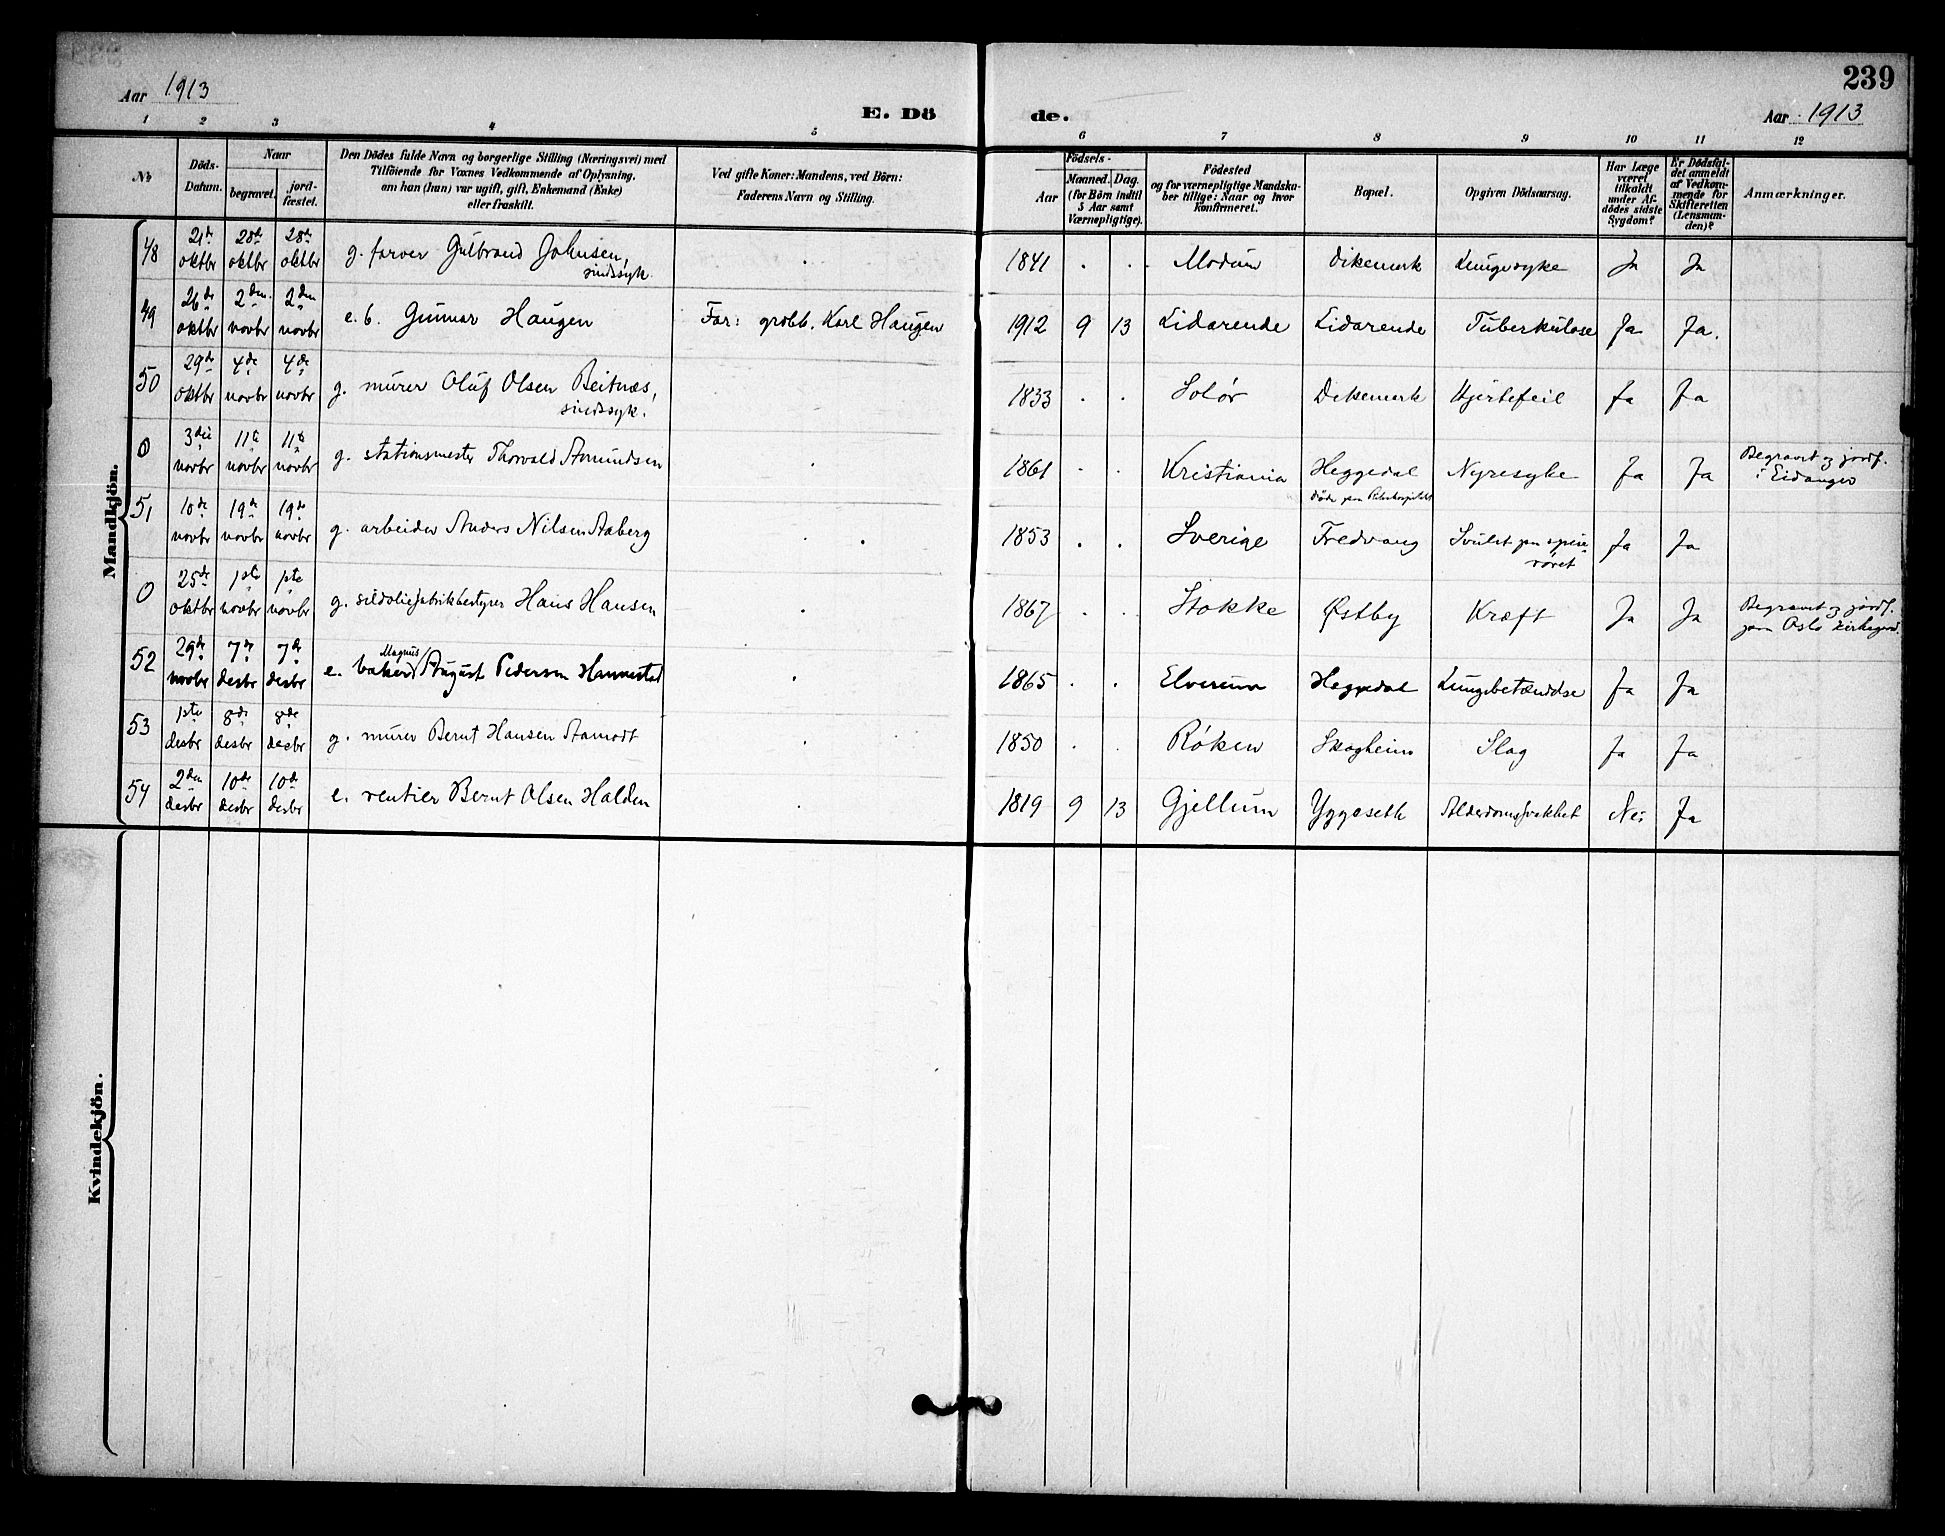 239
Aar 1913
E. Dö
de.
Aar 1913
1 2 3 4 5 6 7 8 9 10 11 12
No
Döds-Datum.
Naar
begravet.
jordfæstet.
Den Dödes fulde Navn og borgerlige Stilling (Næringsvei) med
Tilföiende for Voxnes Vedkommende af Oplysning,
om han (hun) var ugift, gift, Enkemand (Enke)
eller fraskilt.
Ved gifte Koner: Mandens, ved Börn:
Faderens Navn og Stilling.
Födsels-
Aar
Maaned. Dag.
(for Börn indtil
5 Aar samt
Værnepligtige).
Födested
og for værnepligtige Mandska-
ber tillige: Naar og hvor
Konfirmeret.
Bopæl.
Opgiven Dödsaarsag.
Har Læge
været
tilkaldt
under Af-
dödes sidste
Sygdom?
Er Dödsfal-
det anmeldt
af Vedkom-
mende for
Skifteretten
(Lensman-
den)?
Anmærkninger.
Mandkjön.
48 21de oktbr 28de oktbr 28de oktbr g. farver Gulbrand Johnsen, 1841 Modum Dikemark Lungesyke Ja Ja
sindssyk.
49 26de oktbr 2den novbr 2den novbr e. b. Gunnar Haugen Far: grobb. Karl Haugen 1912 9 13 Lidarende Lidarende Tuberkulose Ja Ja.
50 29de oktbr 4de novbr 4de novbr g. murer Oluf Olsen Beitnæs, 1833 Solør Dikemark Hjertefeil Ja Ja
sindssyk.
0 3die novbr 11te novbr 11te novbr g. stationsmester Thorvald Amundsen 1861 Kristiania Heggedal Nyresyke Ja Ja Begravet og jordf.
i Eidanger
51 10de novbr 19de novbr 19de novbr g. arbeider Anders Nilsen Aaberg 1853 Sverige Fredvang Svulst paa spise- Ja Ja
røret
0 25de oktbr 1ste novbr 1ste novbr g. sildoliefabrikbestyrer Hans Hansen 1867 Stokke Østby Kræft Ja Ja Begravet og jordf.
paa Oslo kirkegaard.
52 29de novbr 7de desbr 7de desbr e. baker Magnus August Pedersen Hammestad 1865 Elverum Heggedal Lungebetændelse Ja Ja
53 1ste desbr 8de desbr 8de desbr g. murer Bernt Hansen Aamodt 1850 Røken Skogheim Slag Ja Ja
54 2den desbr 10de desbr 10de desbr e. rentier Bernt Olsen Halden 1819 9 13 Gjellum Yggeseth Alderdomssvakhet Nei Ja
Kvindekjön.